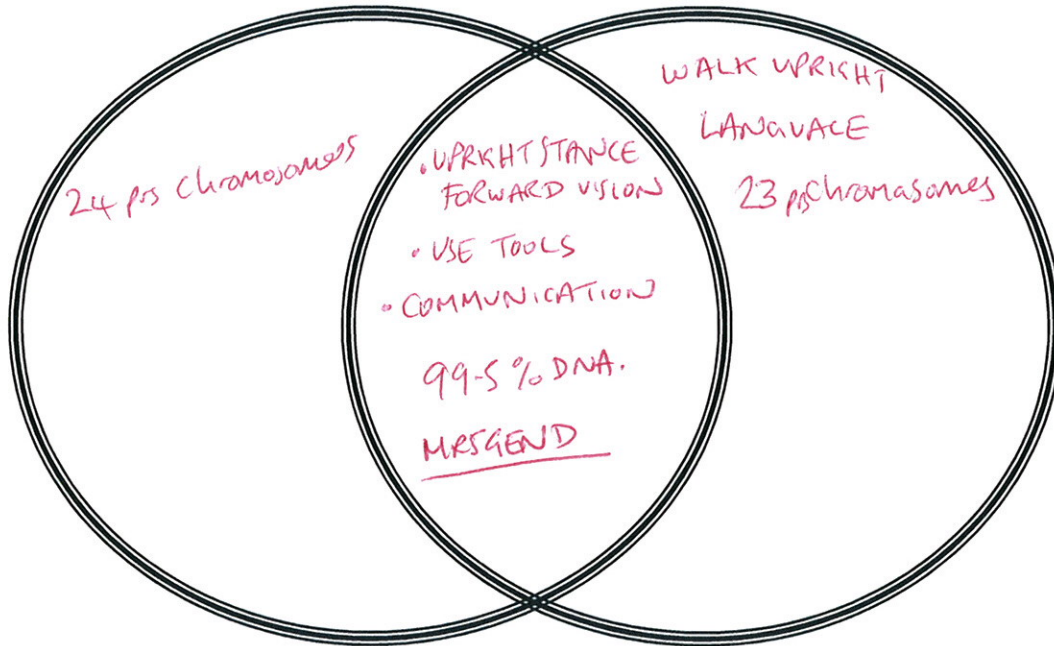 24 prs Chromosomes
. UPRIGHT STANCE
FORWARD VISION
• USE TOOLS
• COMMUNICATION
99-5 % DNA.
MRSGEND
WALK UPRIGHT
LANGUAGE
23 prs Chromasomes